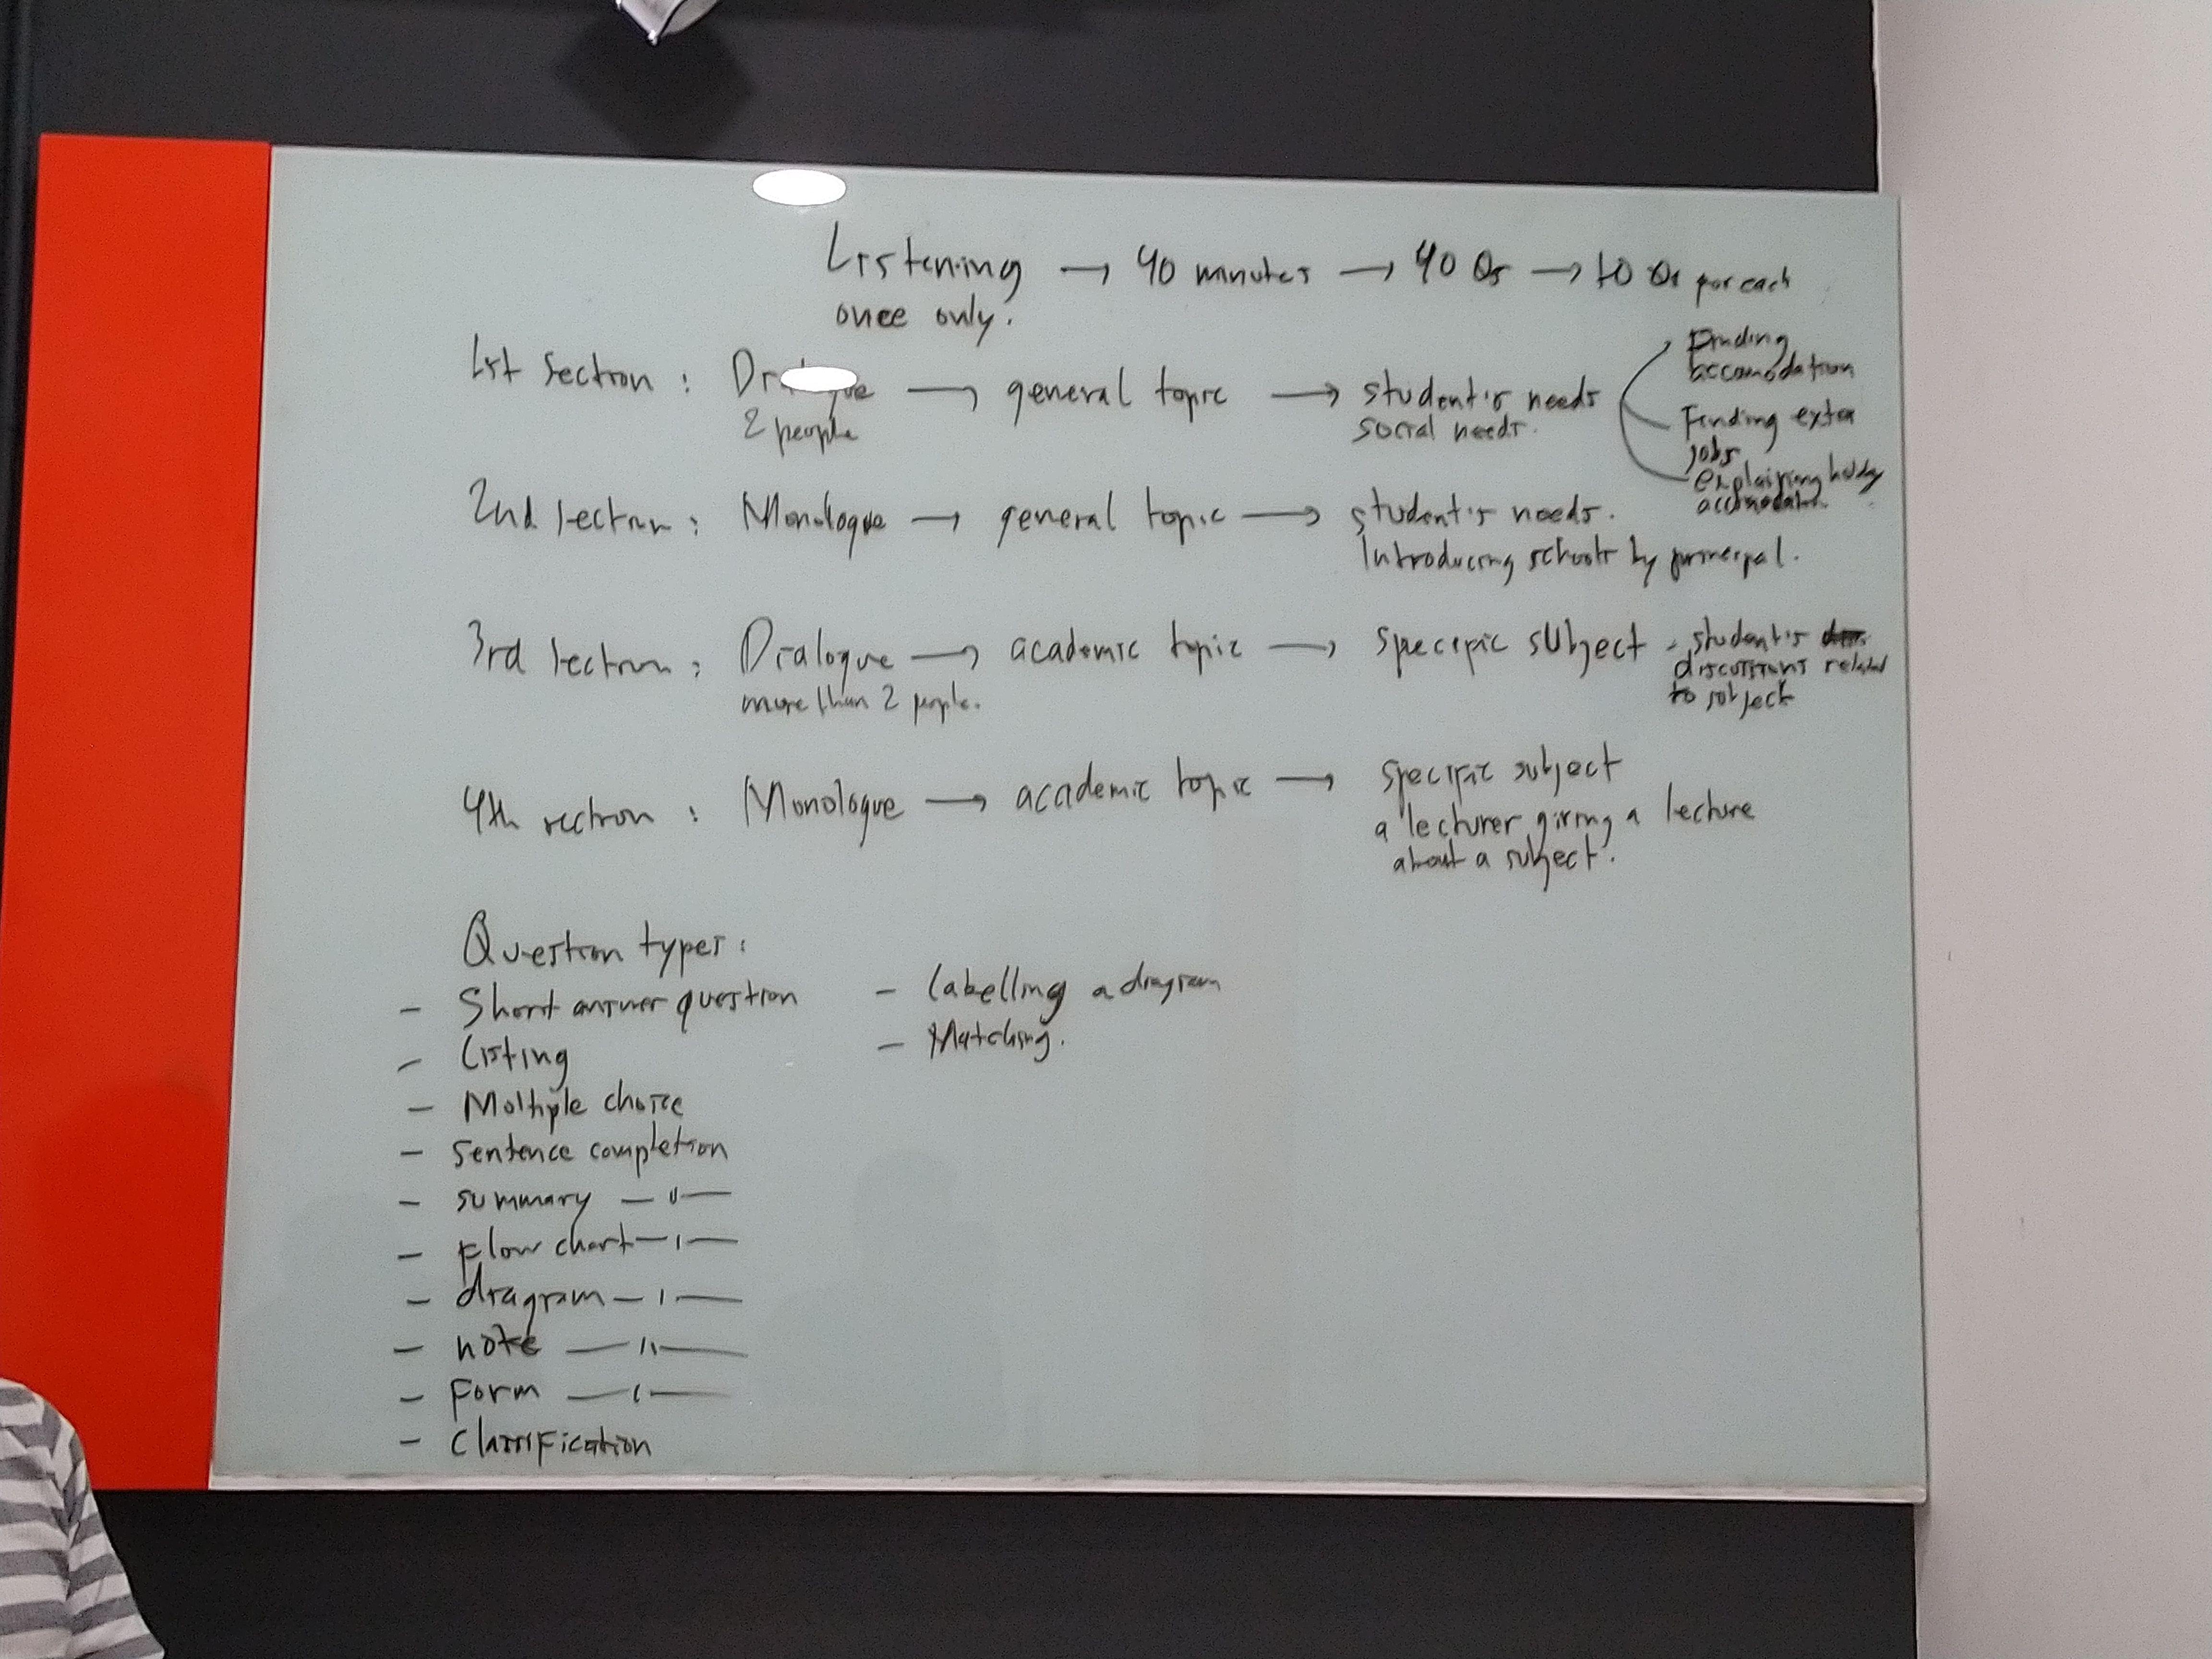 Listening → 40 minutes → 40 Qs → 10 Qs per each
once only.
1st Section : → general topic → student's needs
2 people
social needs.
Finding
accomodation
Finding extra
jobs
explaining
2nd section : Monologue → general topic → student's needs.
Introducing schools by principal.
3rd section : Dialogue → academic topic → specific subject - student's
more than 2 people.
discussions related
to subject
4th section : Monologue → academic topic → specific subject
a lecturer giving a lecture
about a subject.
Question types :
- Short answer question
- Listing
- Multiple choice
- Sentence completion
- summary — " —
- Flow chart — " —
- diagram — " —
- note — " —
- Form — " —
- Classification
- labelling a diagram
- Matching.